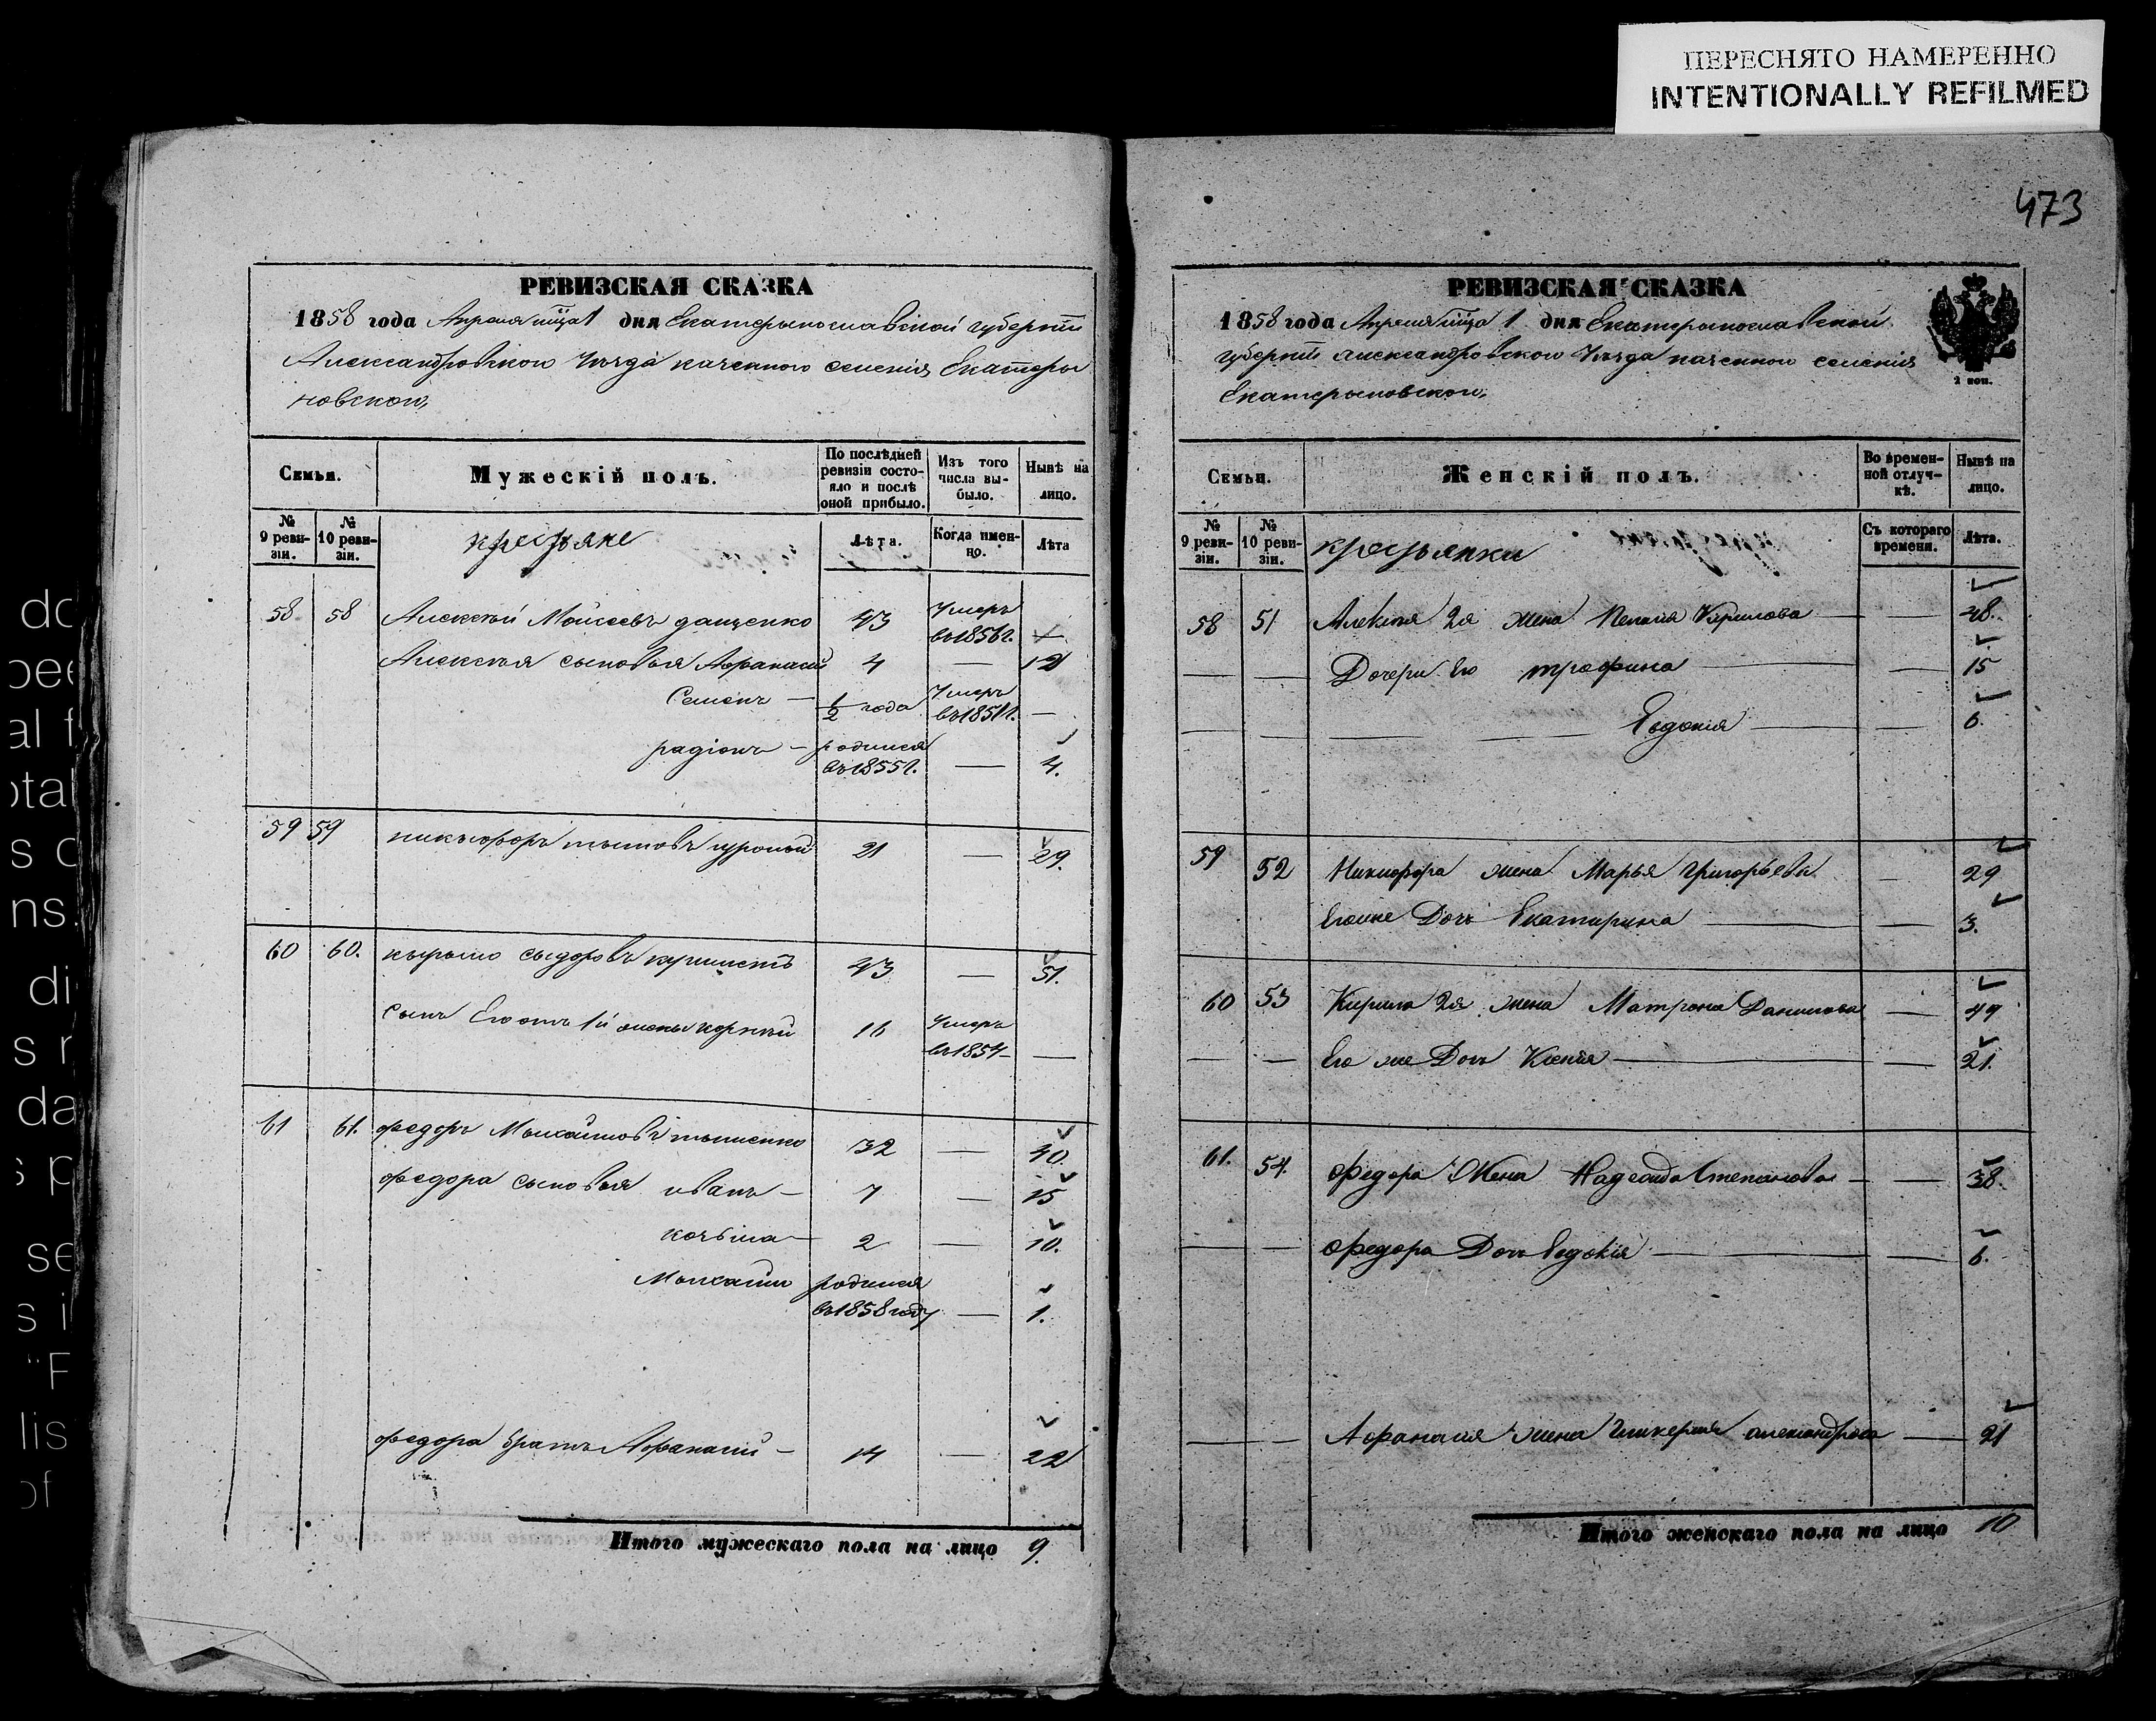 ПЕРЕСНЯТО НАМЕРЕННО
INTENTIONALLY REFILMED
473
РЕВИЗСКАЯ СКАЗКА
1858 года Апреля мца 1 дня Екатерынославской губерніи
Александровского Уезда казенного селенія Екатеры
новского,
Семьи.
Мужескій полъ.
По послѣдней ревизіи состояло и послѣ оной прибыло.
Изъ того числа выбыло.
Нынѣ на лицо.
№ 9 ревизіи.
№ 10 ревизіи.
крестьяне
Лѣта.
Когда именно.
Лѣта
58 58 Алексѣй Моисеевъ дащенко 43 Умеръ въ 1856 г. —
Алексѣя сыновья Афанасий 4 — 12
Семенъ — 1/2 года Умеръ въ 1851 г. —
радіонъ — родился въ 1855 г. — 4.
59 59 никыфоръ 21 — 29.
60 60. кырыло сыдоровъ 43 — 51.
сынъ Его отъ 1й жены корнѣй 16 Умеръ въ 1854 —
61 61. федоръ Мыхайловъ 32 — 40.
федора сыновья иванъ — 7 — 15
козьма — 2 — 10.
Мыхаилъ родился въ 1858 году — 1.
федора братъ Афанасий — 14 — 22
Итого мужескаго пола на лицо 9.
РЕВИЗСКАЯ СКАЗКА
1858 года Апреля мца 1 дня Екатерынославской
губерніи александровского Уезда казенного селенія
Екатерыновского,
2 коп.
Семьи.
Женскій полъ.
Во временной отлучкѣ.
Нынѣ на лицо.
№ 9 ревизіи.
№ 10 ревизіи.
крестьянки
Съ котораго времени.
Лѣта.
58 51 Алексѣя 2я жена Пелагия Кирилова — 48.
— — Дочери Его — — 15
— — Евдокия — — 6.
59 52 Никифора жена Марья Григорьева — 29
Егоже Дочь Екатирина — — 3.
60 53 Кирила 2я жена Матрона Данилова — 49
— — Его же Дочь Ксения — — 21.
61. 54. Федора Жена Надежда Степанова — — 38.
— — Федора Дочь Евдокия — — 6.
— — Афанасия жена Гликерия александрова — 21
Итого женскаго пола на лицо 10